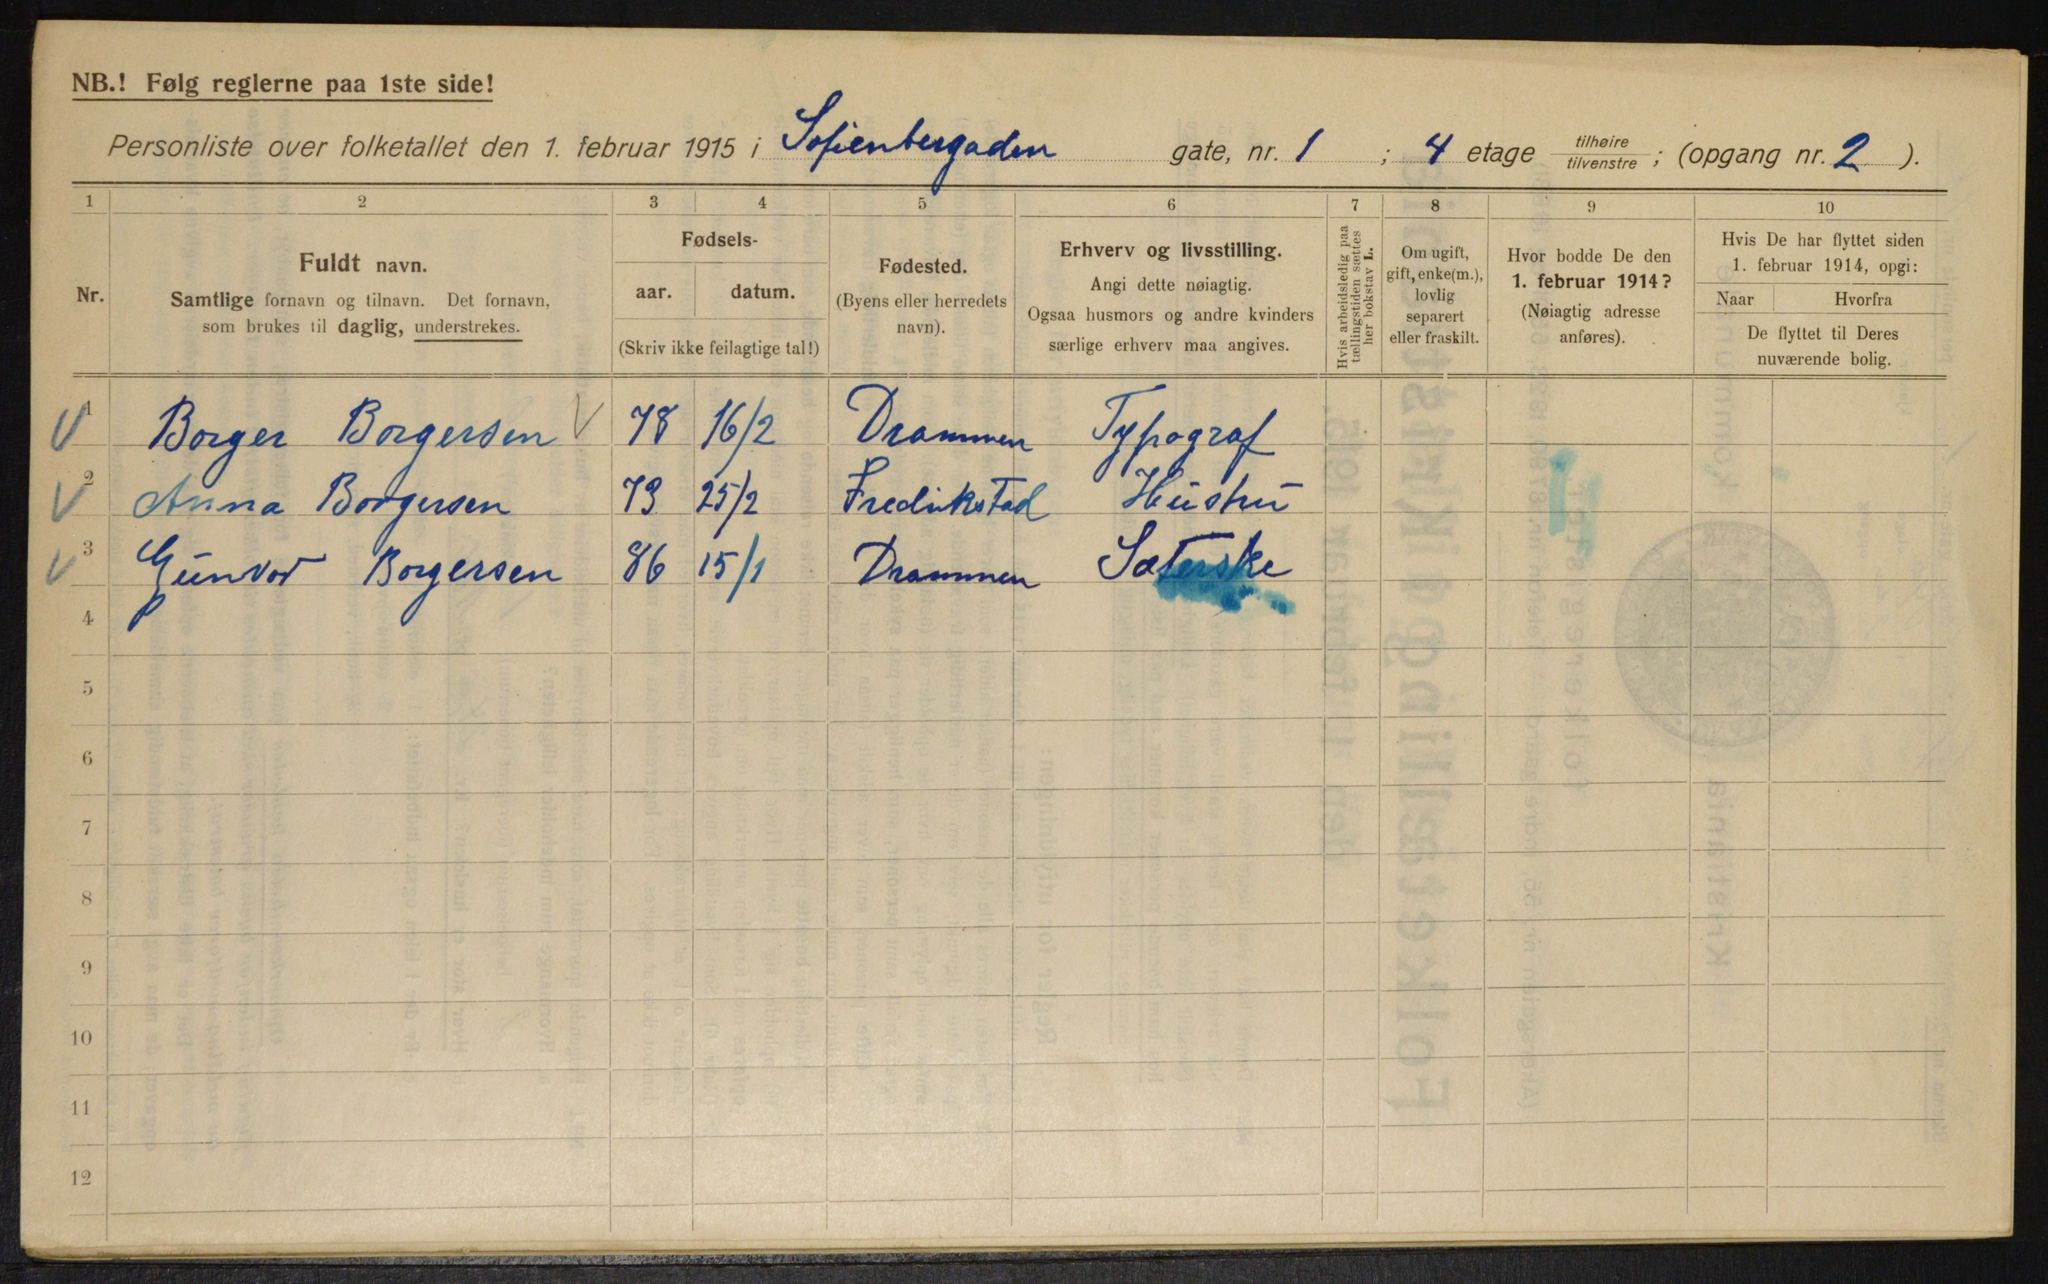 NB.! Følg reglerne paa 1ste side!
Personliste over folketallet den 1. februar 1915 i Sofienbergaden gate, nr. 1 ; 4 etage tilhøire/tilvenstre ; (opgang nr. 2 ).
1 2 3 4 5 6 7 8 9 10
Nr.
Fuldt navn.
Samtlige fornavn og tilnavn. Det fornavn,
som brukes til daglig, understrekes.
Fødsels-
aar. datum.
(Skriv ikke feilagtige tal!)
Fødested.
(Byens eller herredets
navn).
Erhverv og livsstilling.
Angi dette nøiagtig.
Ogsaa husmors og andre kvinders
særlige erhverv maa angives.
Hvis arbeidsledig paa
tællingstiden sættes
her bokstav L.
Om ugift,
gift, enke(m.),
lovlig
separert
eller fraskilt.
Hvor bodde De den
1. februar 1914?
(Nøiagtig adresse
anføres).
Hvis De har flyttet siden
1. februar 1914, opgi:
Naar Hvorfra
De flyttet til Deres
nuværende bolig.
1 Borger Borgersen 78 16/2 Drammen Typograf
2 Anna Borgersen 73 25/2 Fredrikstad Hustru
3 Gunvor Borgersen 86 15/1 Drammen Sæterske
4
5
6
7
8
9
10
11
12